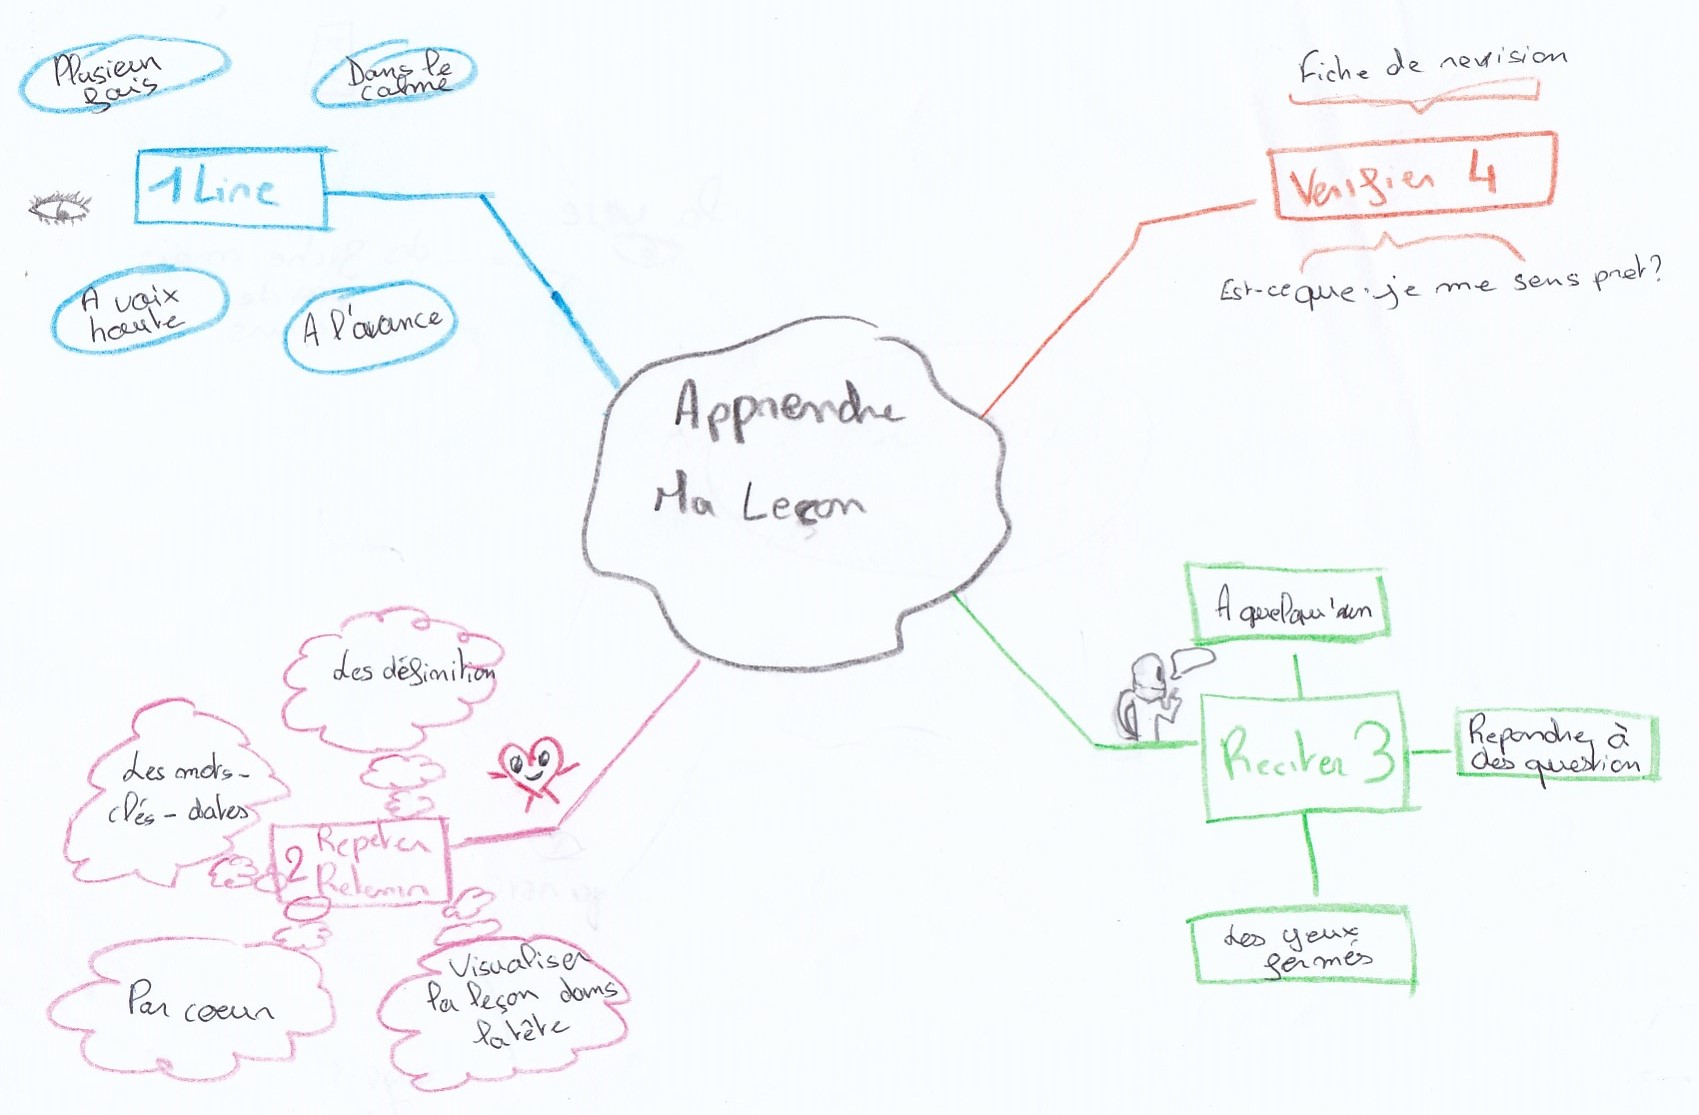 Plusieur
fois
Dans le
calme
1 Lire
A voix
haute
A l'avance
Fiche de revision
Verifier 4
Est-ce que je me sens pret?
Apprendre
Ma Leçon
Les définition
Les mots-
clés - dates
2 Repeter
Retenir
Par cœur
Visualiser
la leçon dans
la tête
A quelqu'un
Reciter 3
Repondre à
des question
Les yeux
fermés